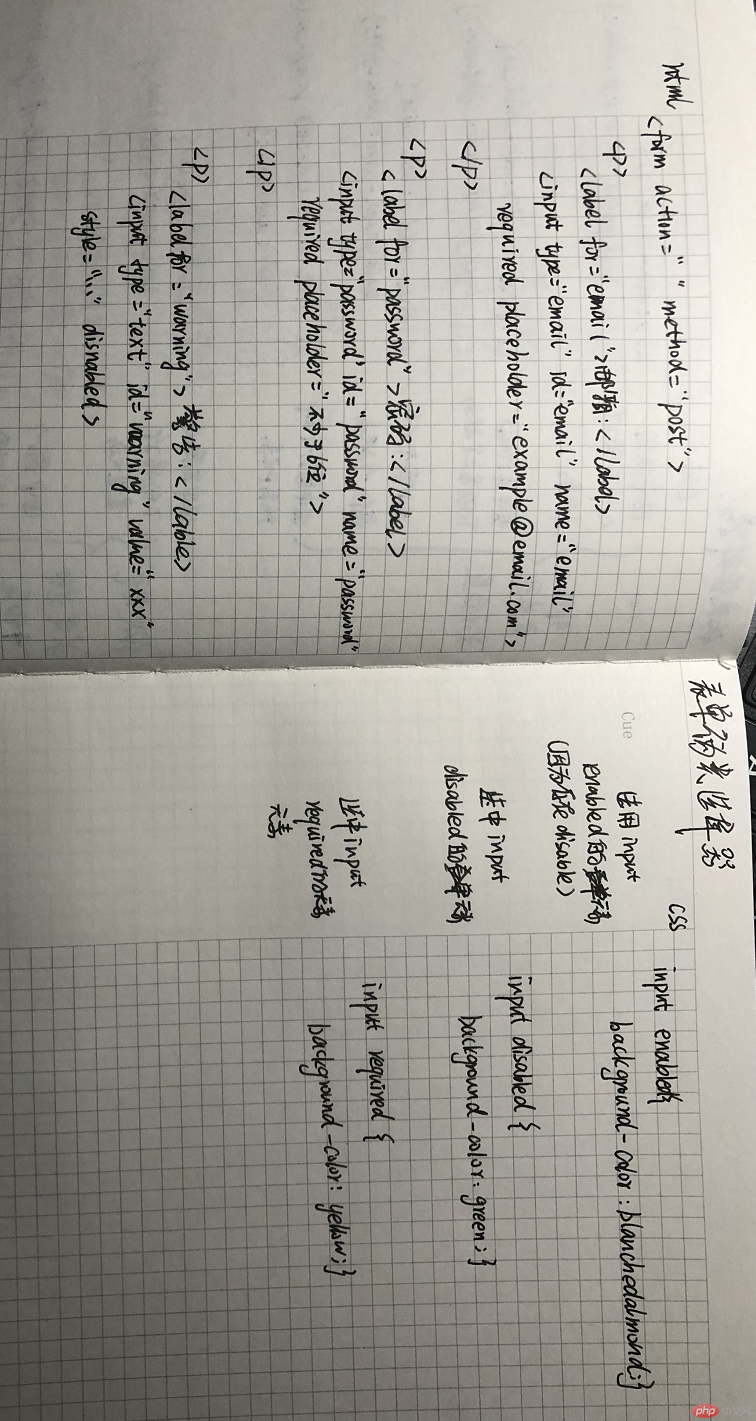 html
<form action=" " method="post">
<p>
<label for="email">邮箱:</label>
<input type="email" id="email" name="email"
required placeholder="example@email.com">
</p>
<p>
<label for="password">密码:</label>
<input type="password" id="password" name="password"
required placeholder="不少于6位">
</p>
<p>
<label for="warning">警告:</lable>
<input type="text" id="warning" value="xxx"
style="..." disnabled>
表单伪类选择器
Cue
css
使用 input
enabled的元素
(因为存在disable)
input enabled{
background-color:blanchedalmond;}
选中 input
disabled的元素
input disabled {
background-color: green;}
选中 input
required的元素
元素
input required {
background-color: yellow;}
php